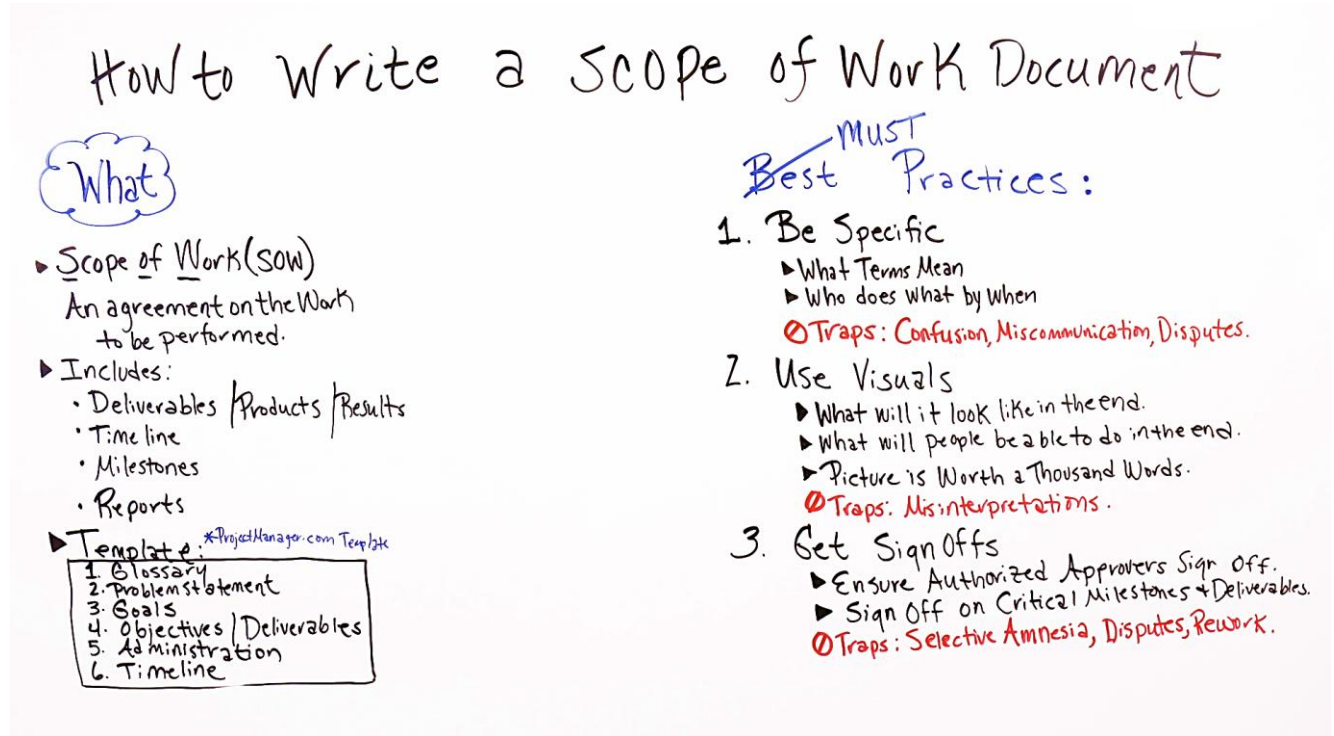 How to Write a Scope of Work Document
What
Scope of Work (SOW)
An agreement on the Work
to be performed.
Includes:
Deliverables / Products / Results
Timeline
Milestones
Reports
Template: *ProjectManager.com Template
1. Glossary
2. Problem Statement
3. Goals
4. Objectives / Deliverables
5. Administration
6. Timeline
MUST
Best Practices:
1. Be Specific
What Terms Mean
Who does what by when
Traps: Confusion, Miscommunication, Disputes.
2. Use Visuals
What will it look like in the end.
What will people be able to do in the end.
Picture is Worth a Thousand Words.
Traps: Misinterpretations.
3. Get Sign Offs
Ensure Authorized Approvers Sign Off.
Sign Off on Critical Milestones + Deliverables.
Traps: Selective Amnesia, Disputes, Rework.